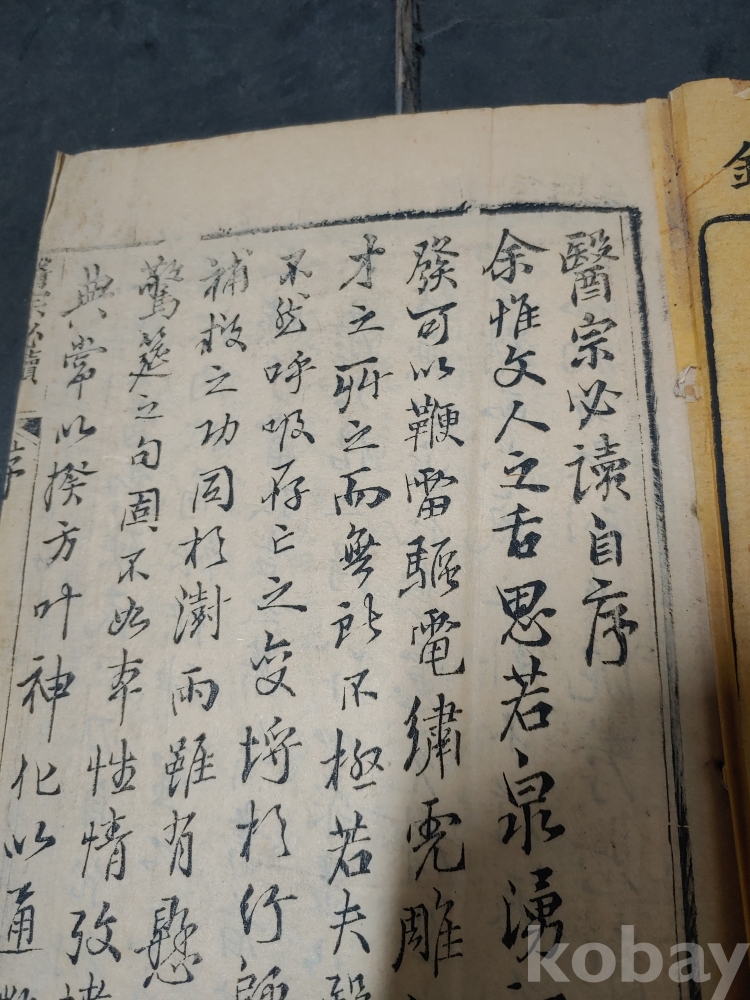 醫宗必讀自序
余惟文人之舌思若泉湧
發可以鞭雷驅電繡虎雕
才之所之而無所不極若夫
不然呼吸存亡之变埒於行師
補救之功同於澍雨雖有懸
驚筵之句固不如本性情攷
典常以揆方叶神化以通
醫宗必讀
序
kobay